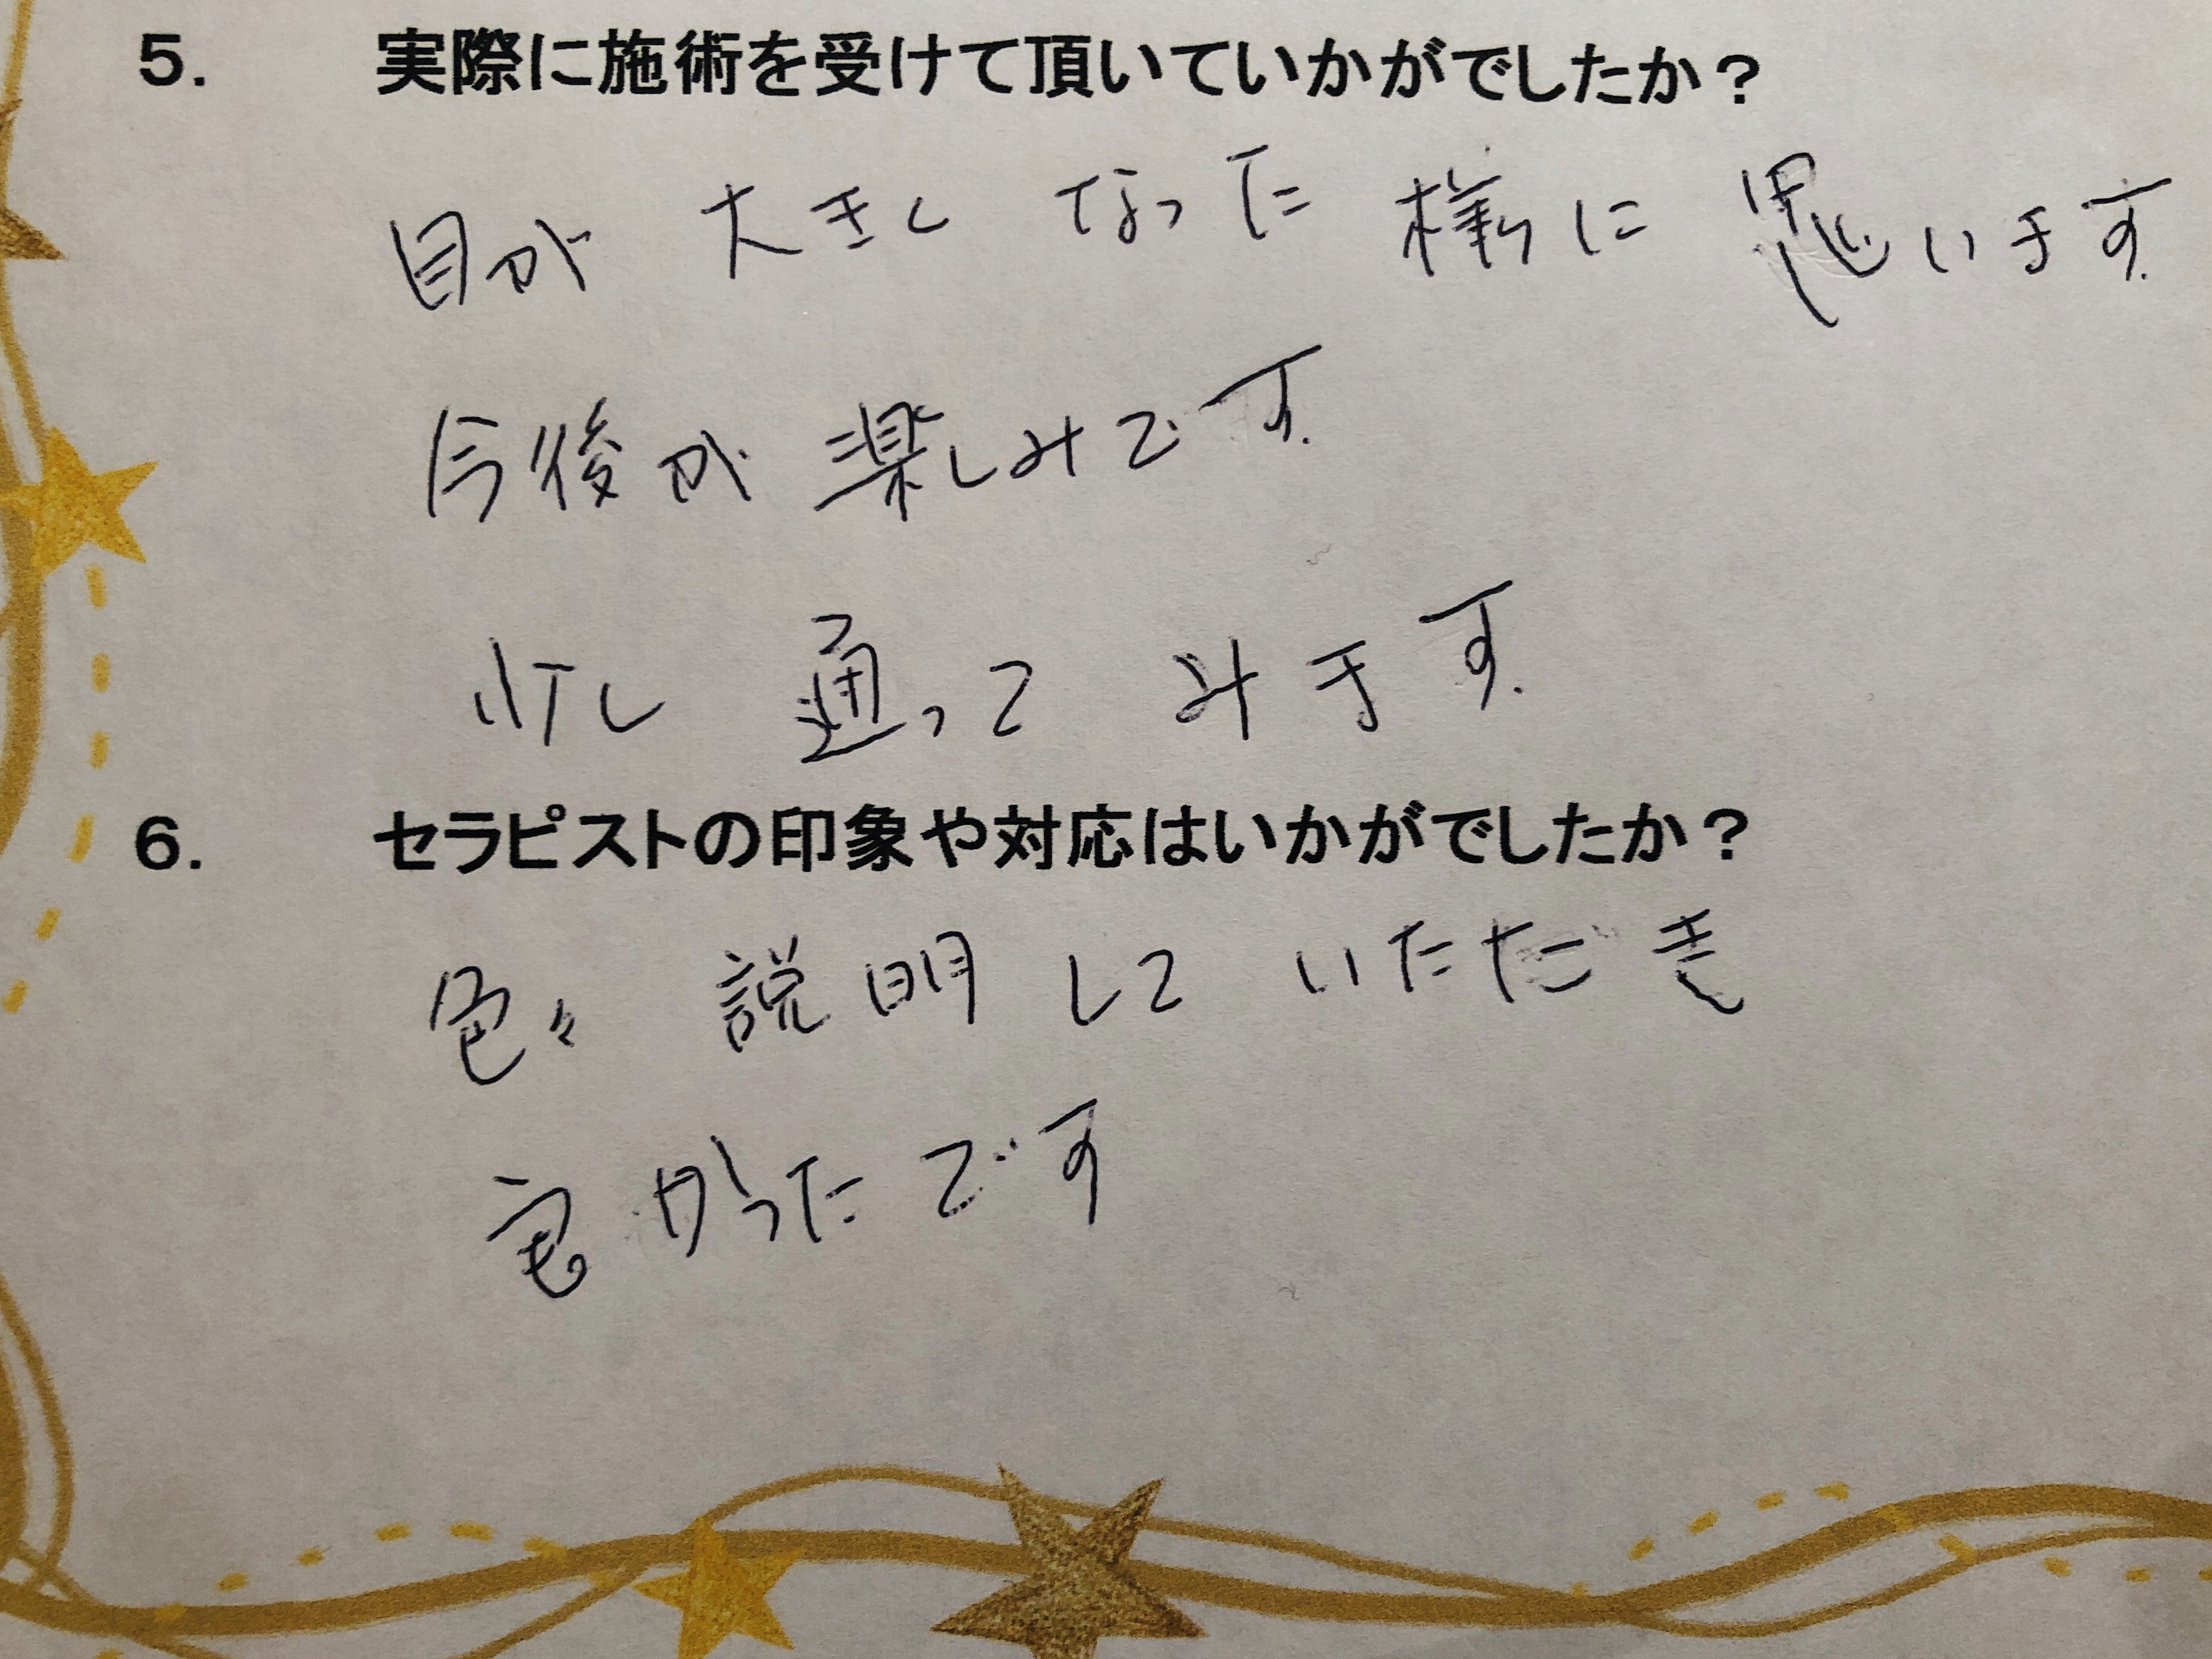 5. 実際に施術を受けて頂いていかがでしたか？
目が 大きく なった 様に 思います
今後が 楽しみです
通って みます
6. セラピストの印象や対応はいかがでしたか？
色々 説明 して いただき
良かったです